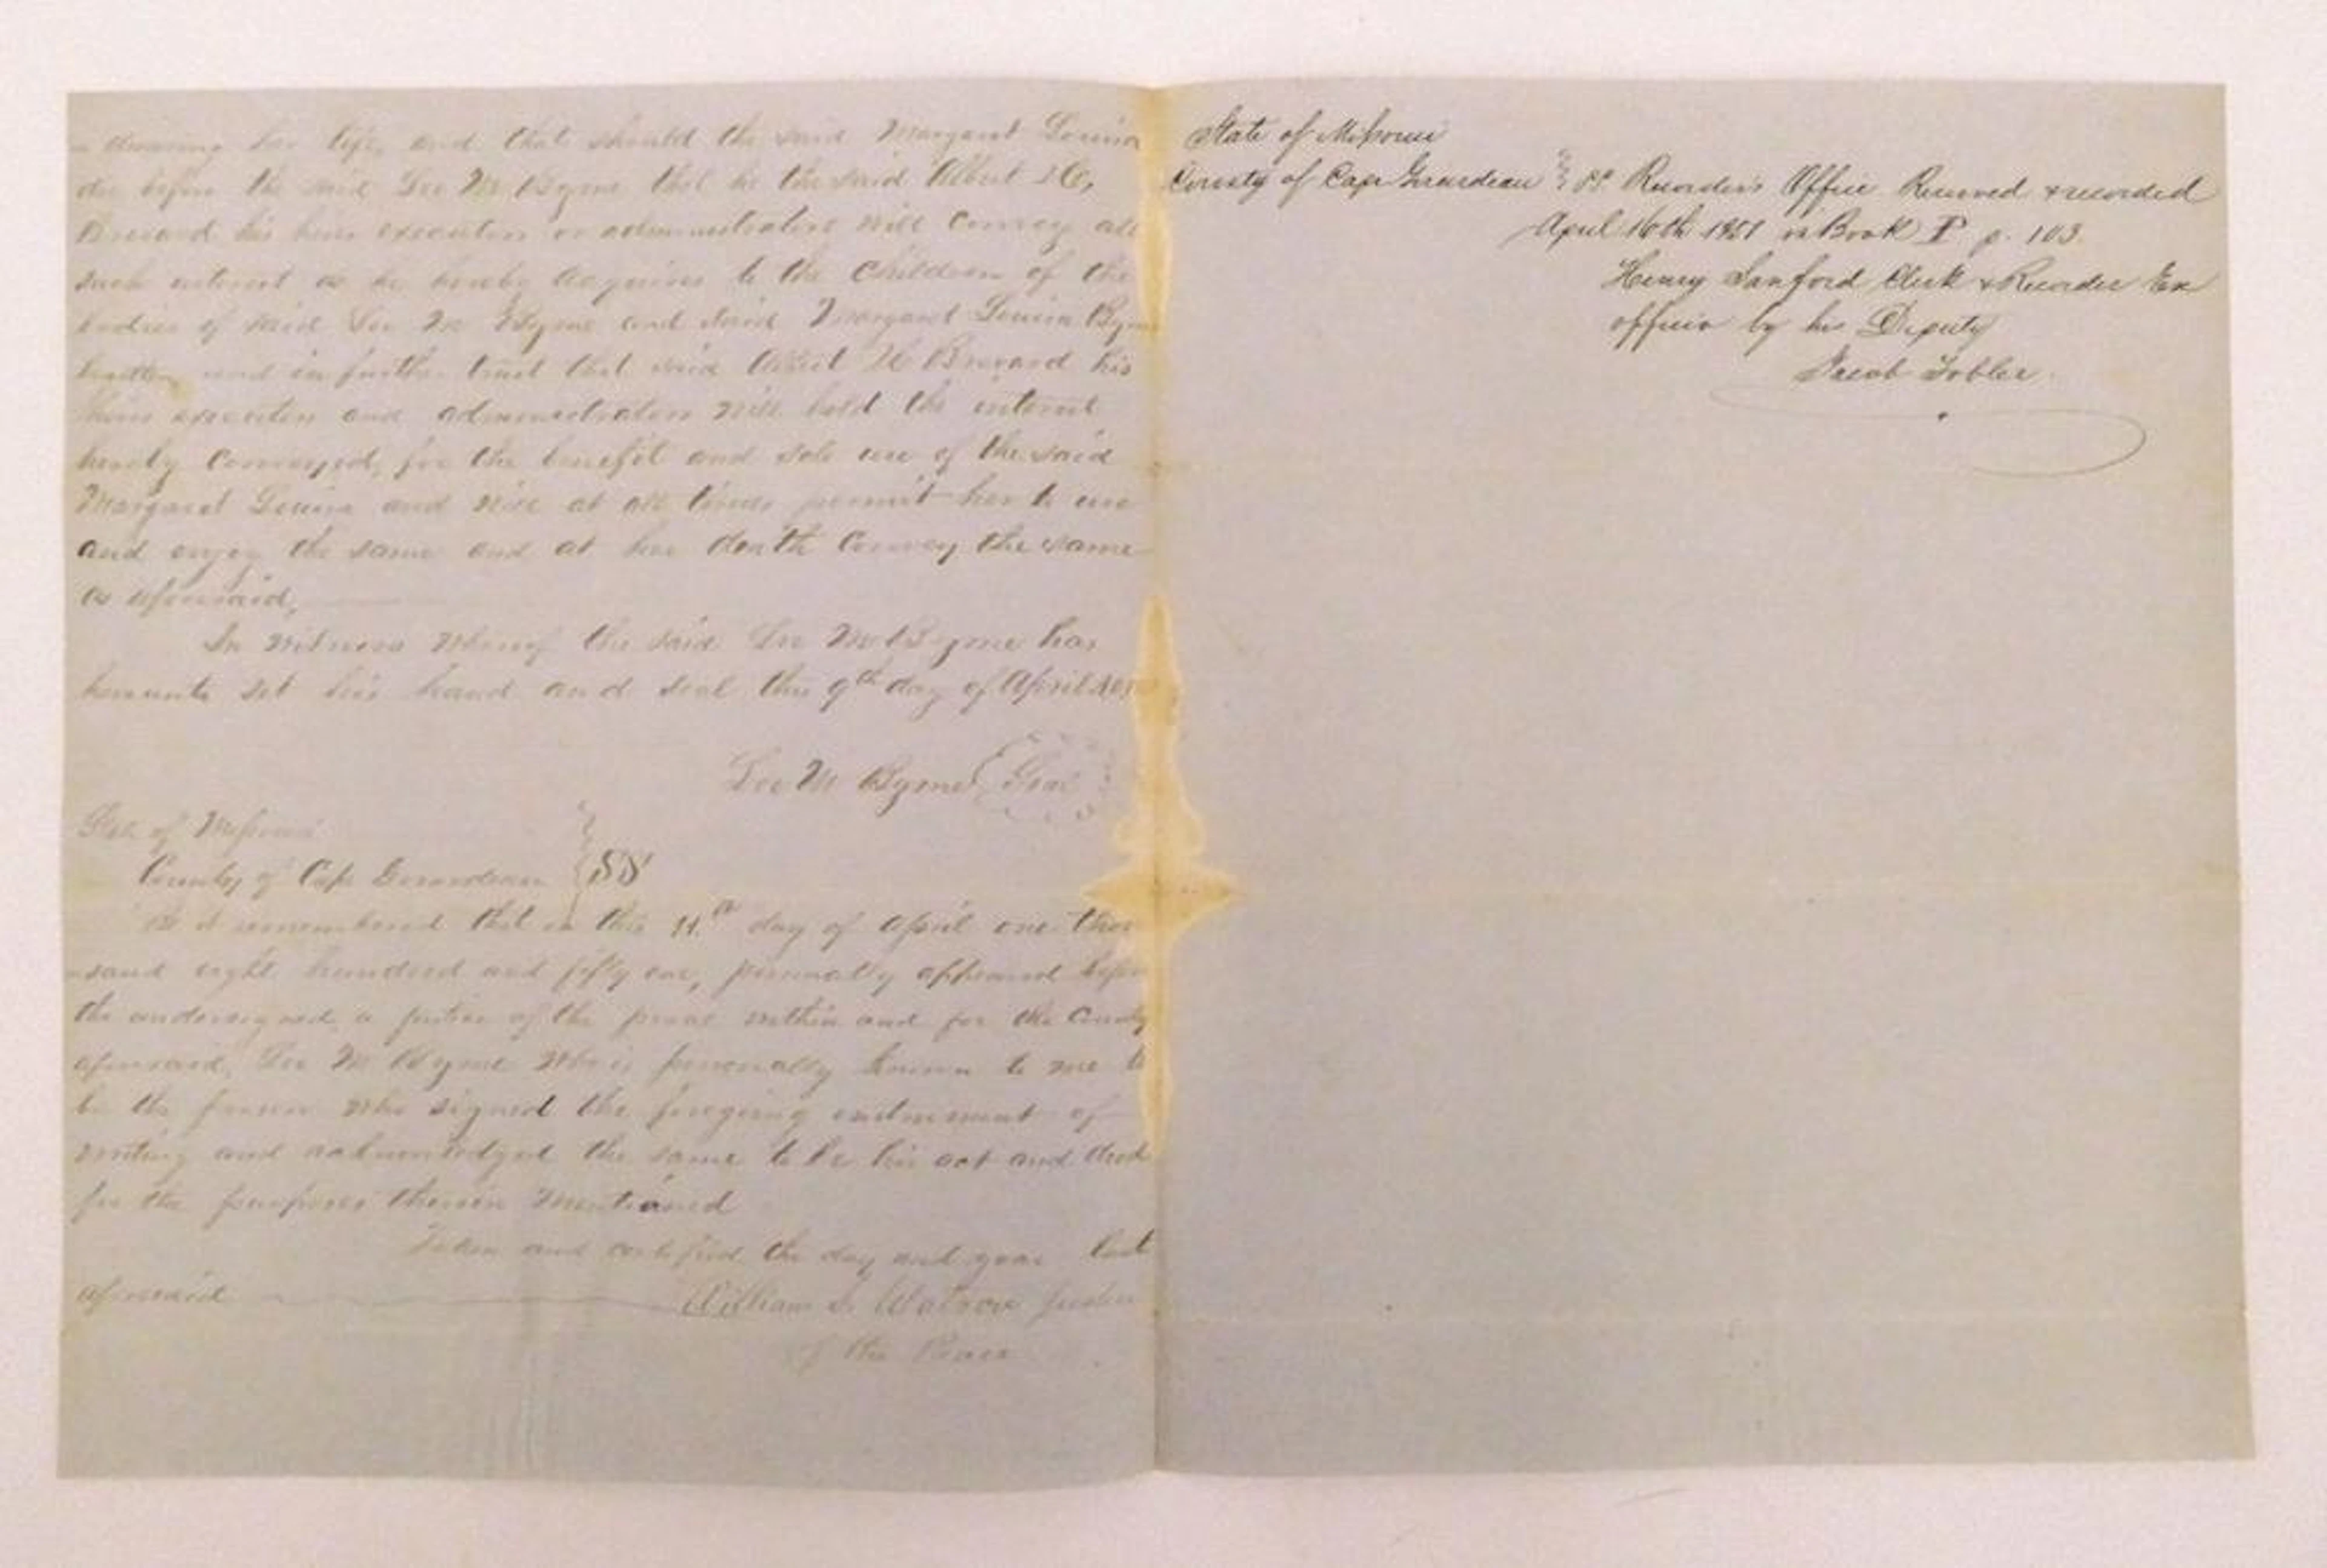 during her life, and that should the said Margaret Louisa
die before the said Leo M Byrne that he the said Albert H
Brevard his heirs executors or administrators will convey all
such interest as he hereby acquires to the children of the
bodies of said Leo M Byrne and said Margaret Louisa Byrne
and in further trust that said Albert H Brevard his
heirs executors and administrators will hold the interest
hereby conveyed, for the benefit and sole use of the said
Margaret Louisa and will at all times permit her to use
and enjoy the same and at her death convey the same
as aforesaid,
In witness whereof the said Leo M Byrne has
hereunto set his hand and seal this 9th day of April
Leo M Byrne Seal
State of Missouri
County of Cape Girardeau SS
Be it remembered that on this 11th day of April one thou
sand eight hundred and fifty one, personally appeared before
the undersigned a justice of the peace within and for the County
aforesaid, Leo M Byrne who is personally known to me to
be the person who signed the foregoing instrument of
writing and acknowledged the same to be his act and deed
for the purposes therein mentioned
Taken and certified the day and year last
aforesaid William S. Watson justice
of the Peace
State of Missouri
County of Cape Girardeau SS Recorder's Office Received & recorded
April 16th 1851 in Book P p. 103.
Henry Sanford Clerk & Recorder Ex
officio by his Deputy
Jacob Tobler